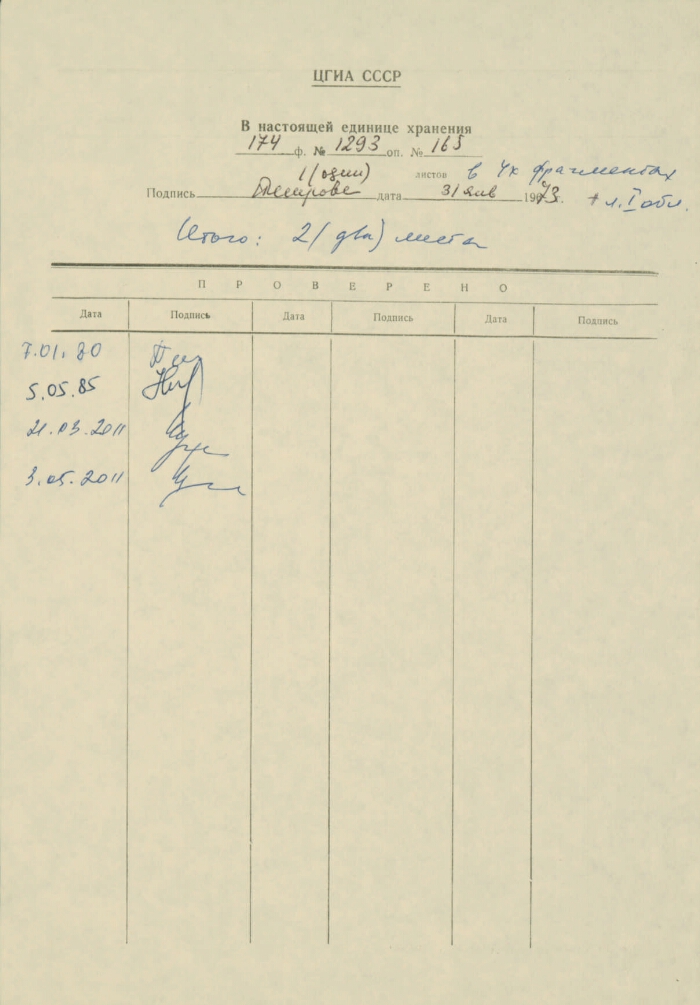 ЦГИА СССР
В настоящей единице хранения
174 ф. № 1293 оп. № 165
1 (один) листов в 4х фрагментах
Подпись дата 31 янв 1973. + л. I обл.
Итого: 2 (два) листа
ПРОВЕРЕНО
Дата Подпись Дата Подпись Дата Подпись
7.01.80
5.05.85
21.03.2011
3.05.2011